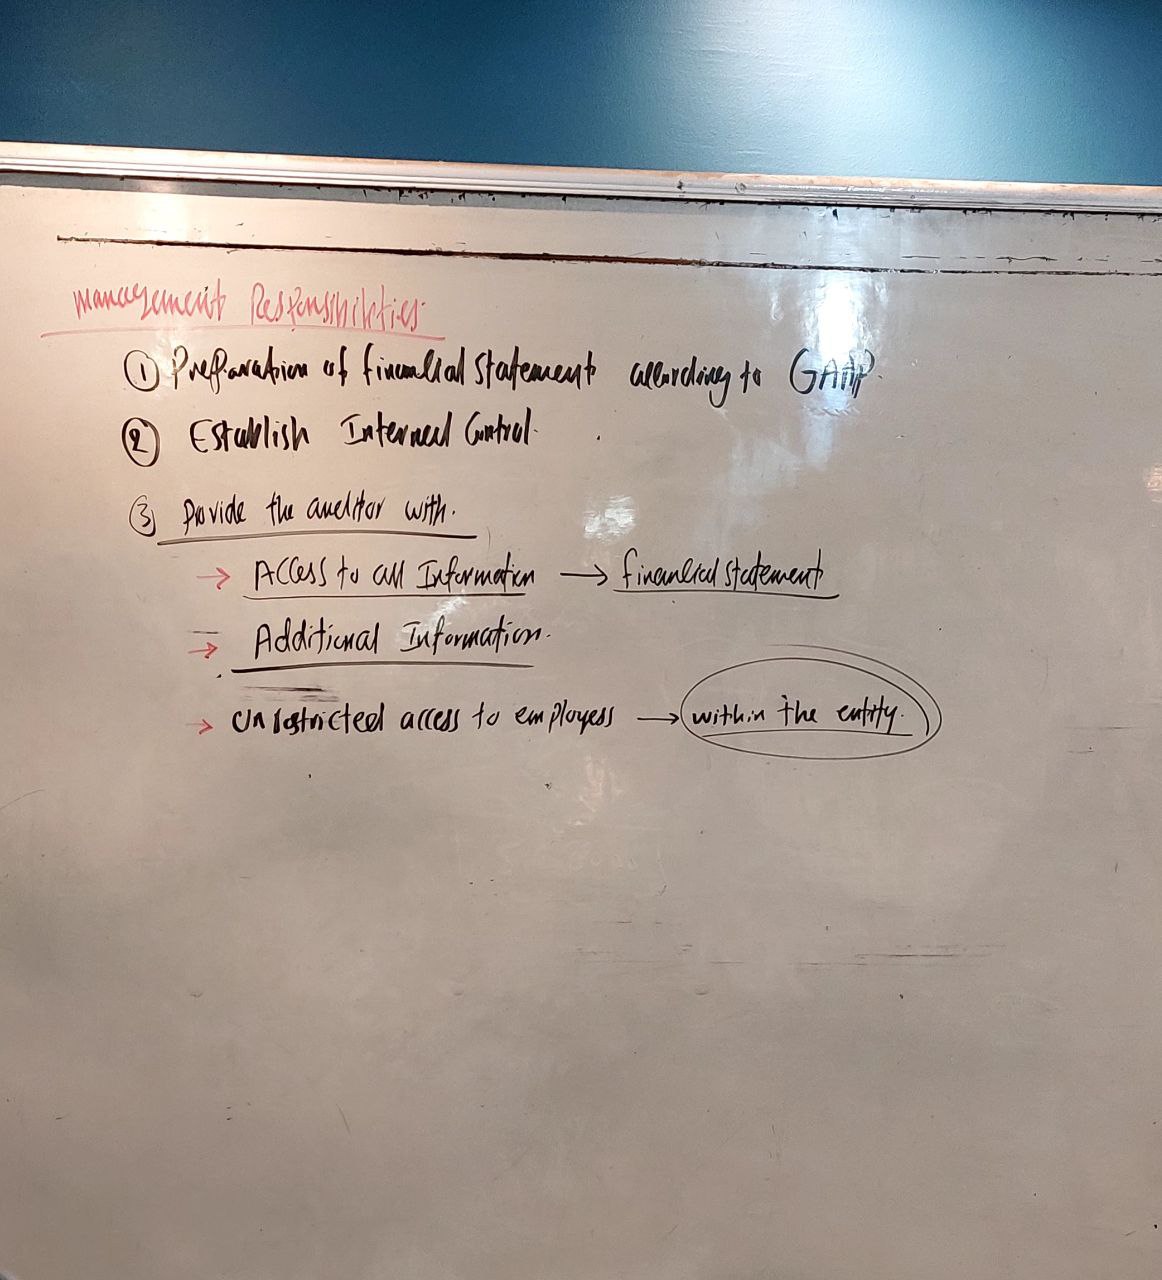 management Responsibilities.
① Preparation of financial statement according to GAAP.
② Establish Internal Control.
③ Provide the auditor with.
→ Access to all Information → financial statement
→ Additional Information.
→ Unrestricted access to employess → within the entity.